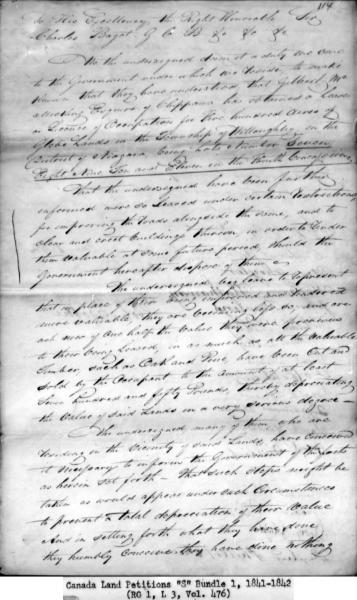 114
To His Excellency, the Right Honorable Sir
Charles Bagot G C B &c &c &c
We the undersigned deem it a duty we owe
to the Government under which we reside to make
known that they have understood that Gilbert Mc
Micken Esquire of Chippawa has obtained a Lease
or Licence of Occupation for Five hundred Acres of
Glebe Lands in the Township of Willoughby in the
District of Niagara being Lots Number Seven
Eight Nine Ten and Eleven in the Fourth Concession
That the undersigned have been further
informed were so Leased under certain Restrictions
for improving the Roads alongside the same, and to
clear and erect buildings thereon, in order to render
them valuable at some future period, should the
Government hereafter dispose of them
The undersigned beg leave to represent
that in place of their being improved and rendered
more valuable, they are becoming less so, and are
not now of one half the value they were previous
to their being Leased, in as much as all the valuable
Timber, such as Oak and Pine, have been Cut and
Sold by the Occupant to the amount of at least
hundred and fifty Pounds, thereby depreciating
the value of said Lands in a very serious degree
The undersigned many of them, who are
residing in the vicinity of said Lands, have conceived
it necessary to inform the Government of the facts
as herein set forth - that such steps might be
taken as would appear under such Circumstances
to prevent a total depreciation of their value
And in setting forth what they have done
they humbly conceive they have done nothing
Canada Land Petitions "S" Bundle 1, 1841-1842
(RG 1, L 3, Vol. 476)